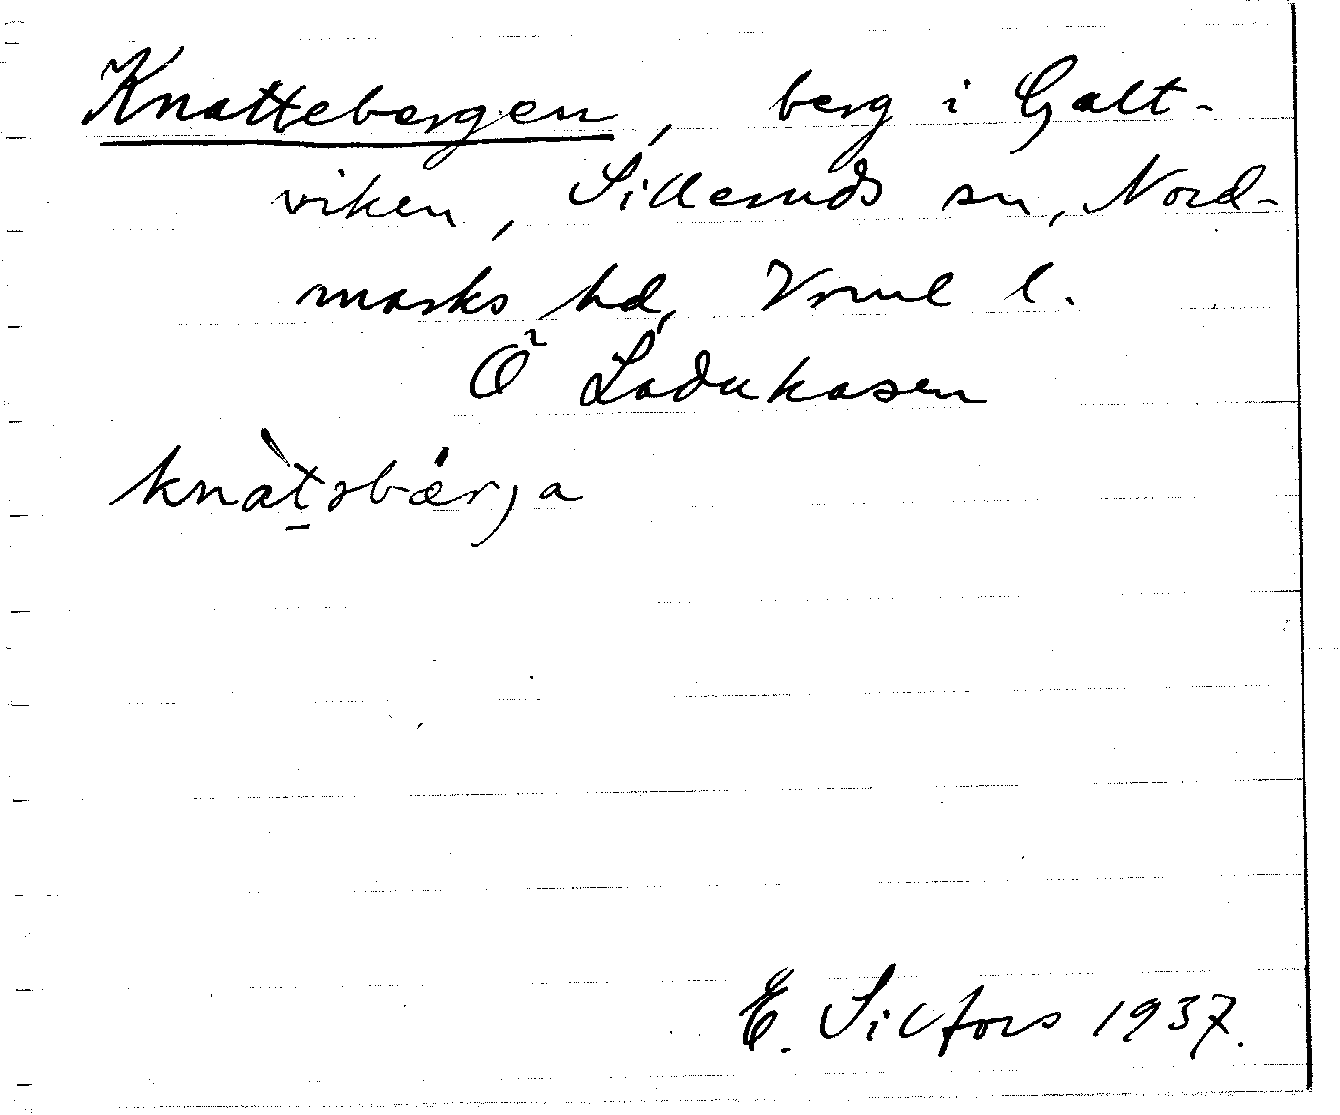 Knattebergen, berg i Galt-
viken, Silleruds sn, Nord-
marks hd, Vrml l.
Ö Ladukasen
knàt̠əbær͵ja
E. Silfors 1937.